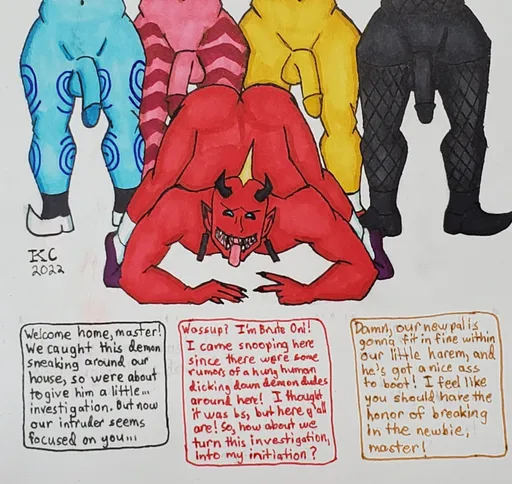 KC
2022
Welcome home, master!
We caught this demon
sneaking around our
house, so were about
to give him a little...
investigation. But now
our intruder seems
focused on you...
Wassup? I'm Brute Oni!
I came snooping here
since there were some
rumors of a hung human
dicking down demon dudes
around here! I thought
it was bs, but here y'all
are! So, how about we
turn this investigation,
into my initiation?
Damn, our new pal is
gonna fit in fine within
our little harem, and
he's got a nice ass
to boot! I feel like
you should have the
honor of breaking
in the newbie,
master!